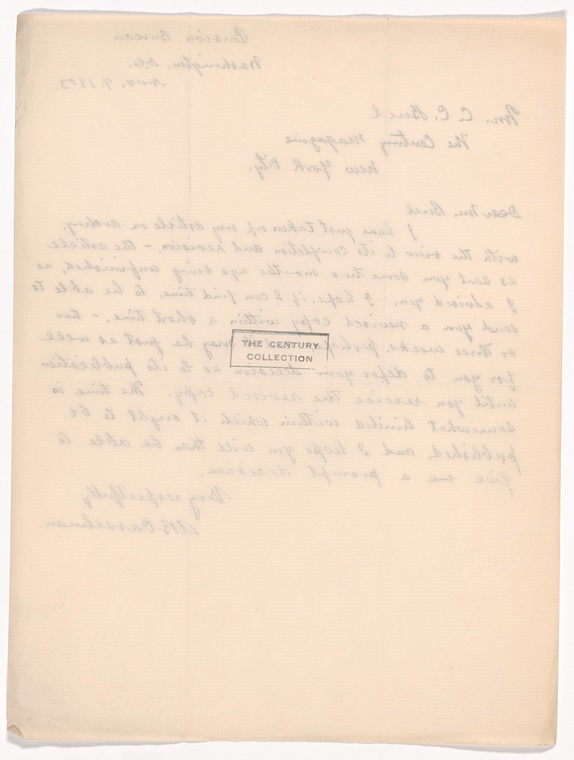 Pension Bureau
Washington, D.C.
Nov. 9, 1903.
Mr. C. C. Buel
The Century Magazine
New York City.
Dear Mr. Buel
I have just taken up my article on archery,
with the view to its completion and revision, – the article
as sent you some two months ago being unfinished, as
I advised you. I hope, if I can find time, to be able to
send you a revised copy within a short time, – two
or three weeks, perhaps. may be just as well
for you to defer your decision as to its publication
until you receive the revised copy. The time is
somewhat limited within which it ought to be
published, and I hope you will then be able to
give me a prompt decision.
Very respectfully
A B Casselman
THE CENTURY
COLLECTION